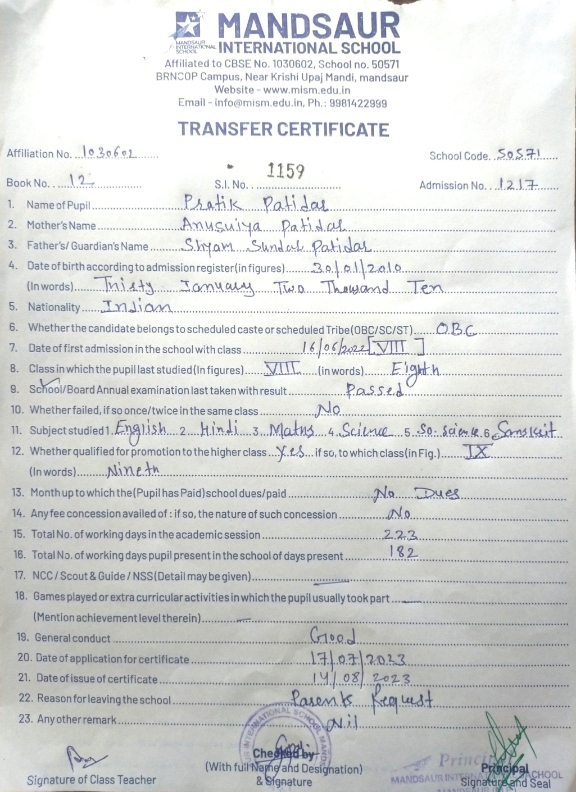 MANDSAUR
INTERNATIONAL SCHOOL
MANDSAUR INTERNATIONAL SCHOOL
Affiliated to CBSE No. 1030602, School no. 50571
BRNCOP Campus, Near Krishi Upaj Mandi, mandsaur
Website - www.mism.edu.in
Email - info@mism.edu.in, Ph.: 9981422999
TRANSFER CERTIFICATE
Affiliation No. 1030602 School Code. 50571
Book No. 12 S.I. No. 1159 Admission No. 1217
1. Name of Pupil Pratik Patidar
2. Mother's Name Anusuiya Patidar
3. Father's/ Guardian's Name Shyam Sundar Patidar
4. Date of birth according to admission register (in figures) 30/01/2010
(In words) Thirty January Two Thousand Ten
5. Nationality Indian
6. Whether the candidate belongs to scheduled caste or scheduled Tribe (OBC/SC/ST) OBC
7. Date of first admission in the school with class 16/06/2022 [VIII]
8. Class in which the pupil last studied (In figures) VIII (in words) Eighth
9. School/Board Annual examination last taken with result Passed
10. Whether failed, if so once/twice in the same class No
11. Subject studied 1. English 2. Hindi 3. Maths 4. Science 5. So. Science 6. Sanskrit
12. Whether qualified for promotion to the higher class Yes if so, to which class (in Fig.) IX
(In words) Nineth
13. Month up to which the (Pupil has Paid) school dues/paid No Dues
14. Any fee concession availed of : if so, the nature of such concession No
15. Total No. of working days in the academic session 223
16. Total No. of working days pupil present in the school of days present 182
17. NCC / Scout & Guide / NSS (Detail may be given)
18. Games played or extra curricular activities in which the pupil usually took part
(Mention achievement level therein)
19. General conduct Good
20. Date of application for certificate 17/07/2023
21. Date of issue of certificate 14/08/2023
22. Reason for leaving the school Parents Request
23. Any other remark Nil
Signature of Class Teacher
Checked by
(With full Name and Designation)
& Signature
Principal
Signature and Seal
INTERNATIONAL SCHOOL
Principal
MANDSAUR INTERNATIONAL SCHOOL